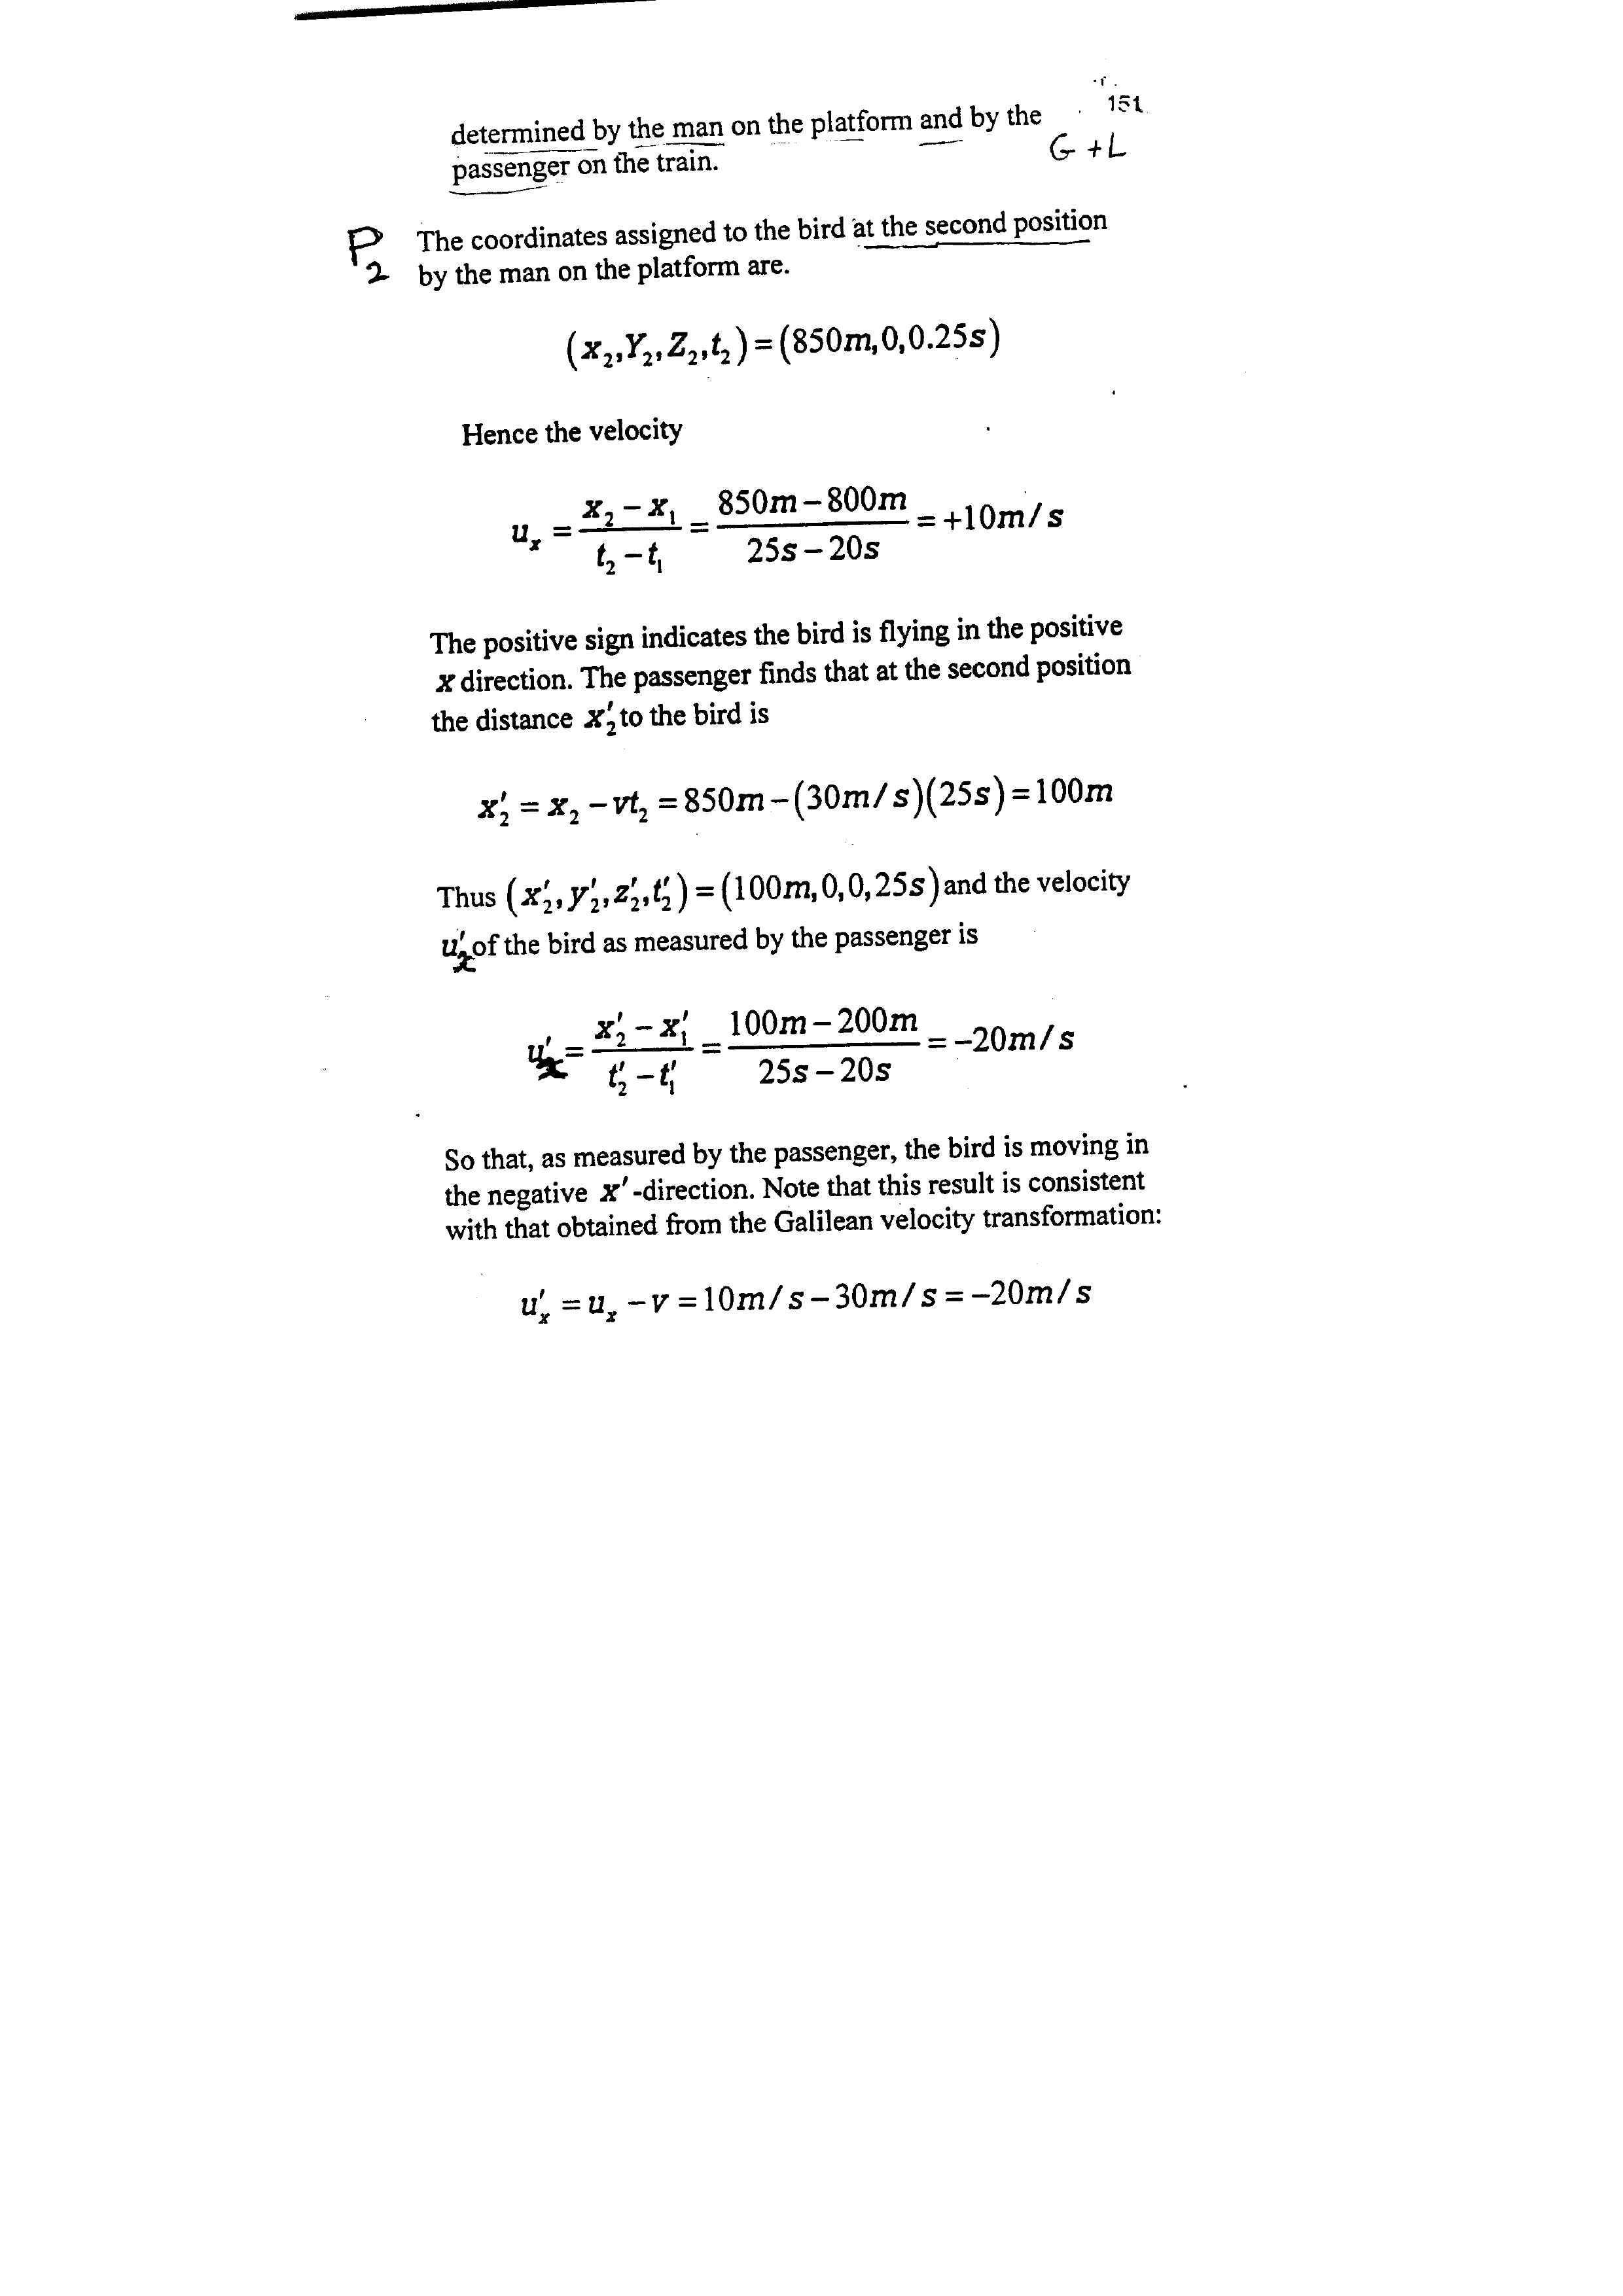 151
determined by the man on the platform and by the
G + L
passenger on the train.
P2
The coordinates assigned to the bird at the second position
by the man on the platform are.
(x₂,Y₂,Z₂,t₂)=(850m,0,0.25s)
Hence the velocity
uₓ = (x₂ − x₁)/(t₂ − t₁) = (850m − 800m)/(25s − 20s) = +10m/s
The positive sign indicates the bird is flying in the positive
x direction. The passenger finds that at the second position
the distance x′₂ to the bird is
x′₂ = x₂ − vt₂ = 850m − (30m/s)(25s) = 100m
Thus (x′₂,y′₂,z′₂,t′₂)=(100m,0,0,25s) and the velocity
u′ₓ of the bird as measured by the passenger is
u′ₓ = (x′₂ − x′₁)/(t′₂ − t′₁) = (100m − 200m)/(25s − 20s) = −20m/s
So that, as measured by the passenger, the bird is moving in
the negative x′-direction. Note that this result is consistent
with that obtained from the Galilean velocity transformation:
u′ₓ = uₓ − v = 10m/s − 30m/s = −20m/s